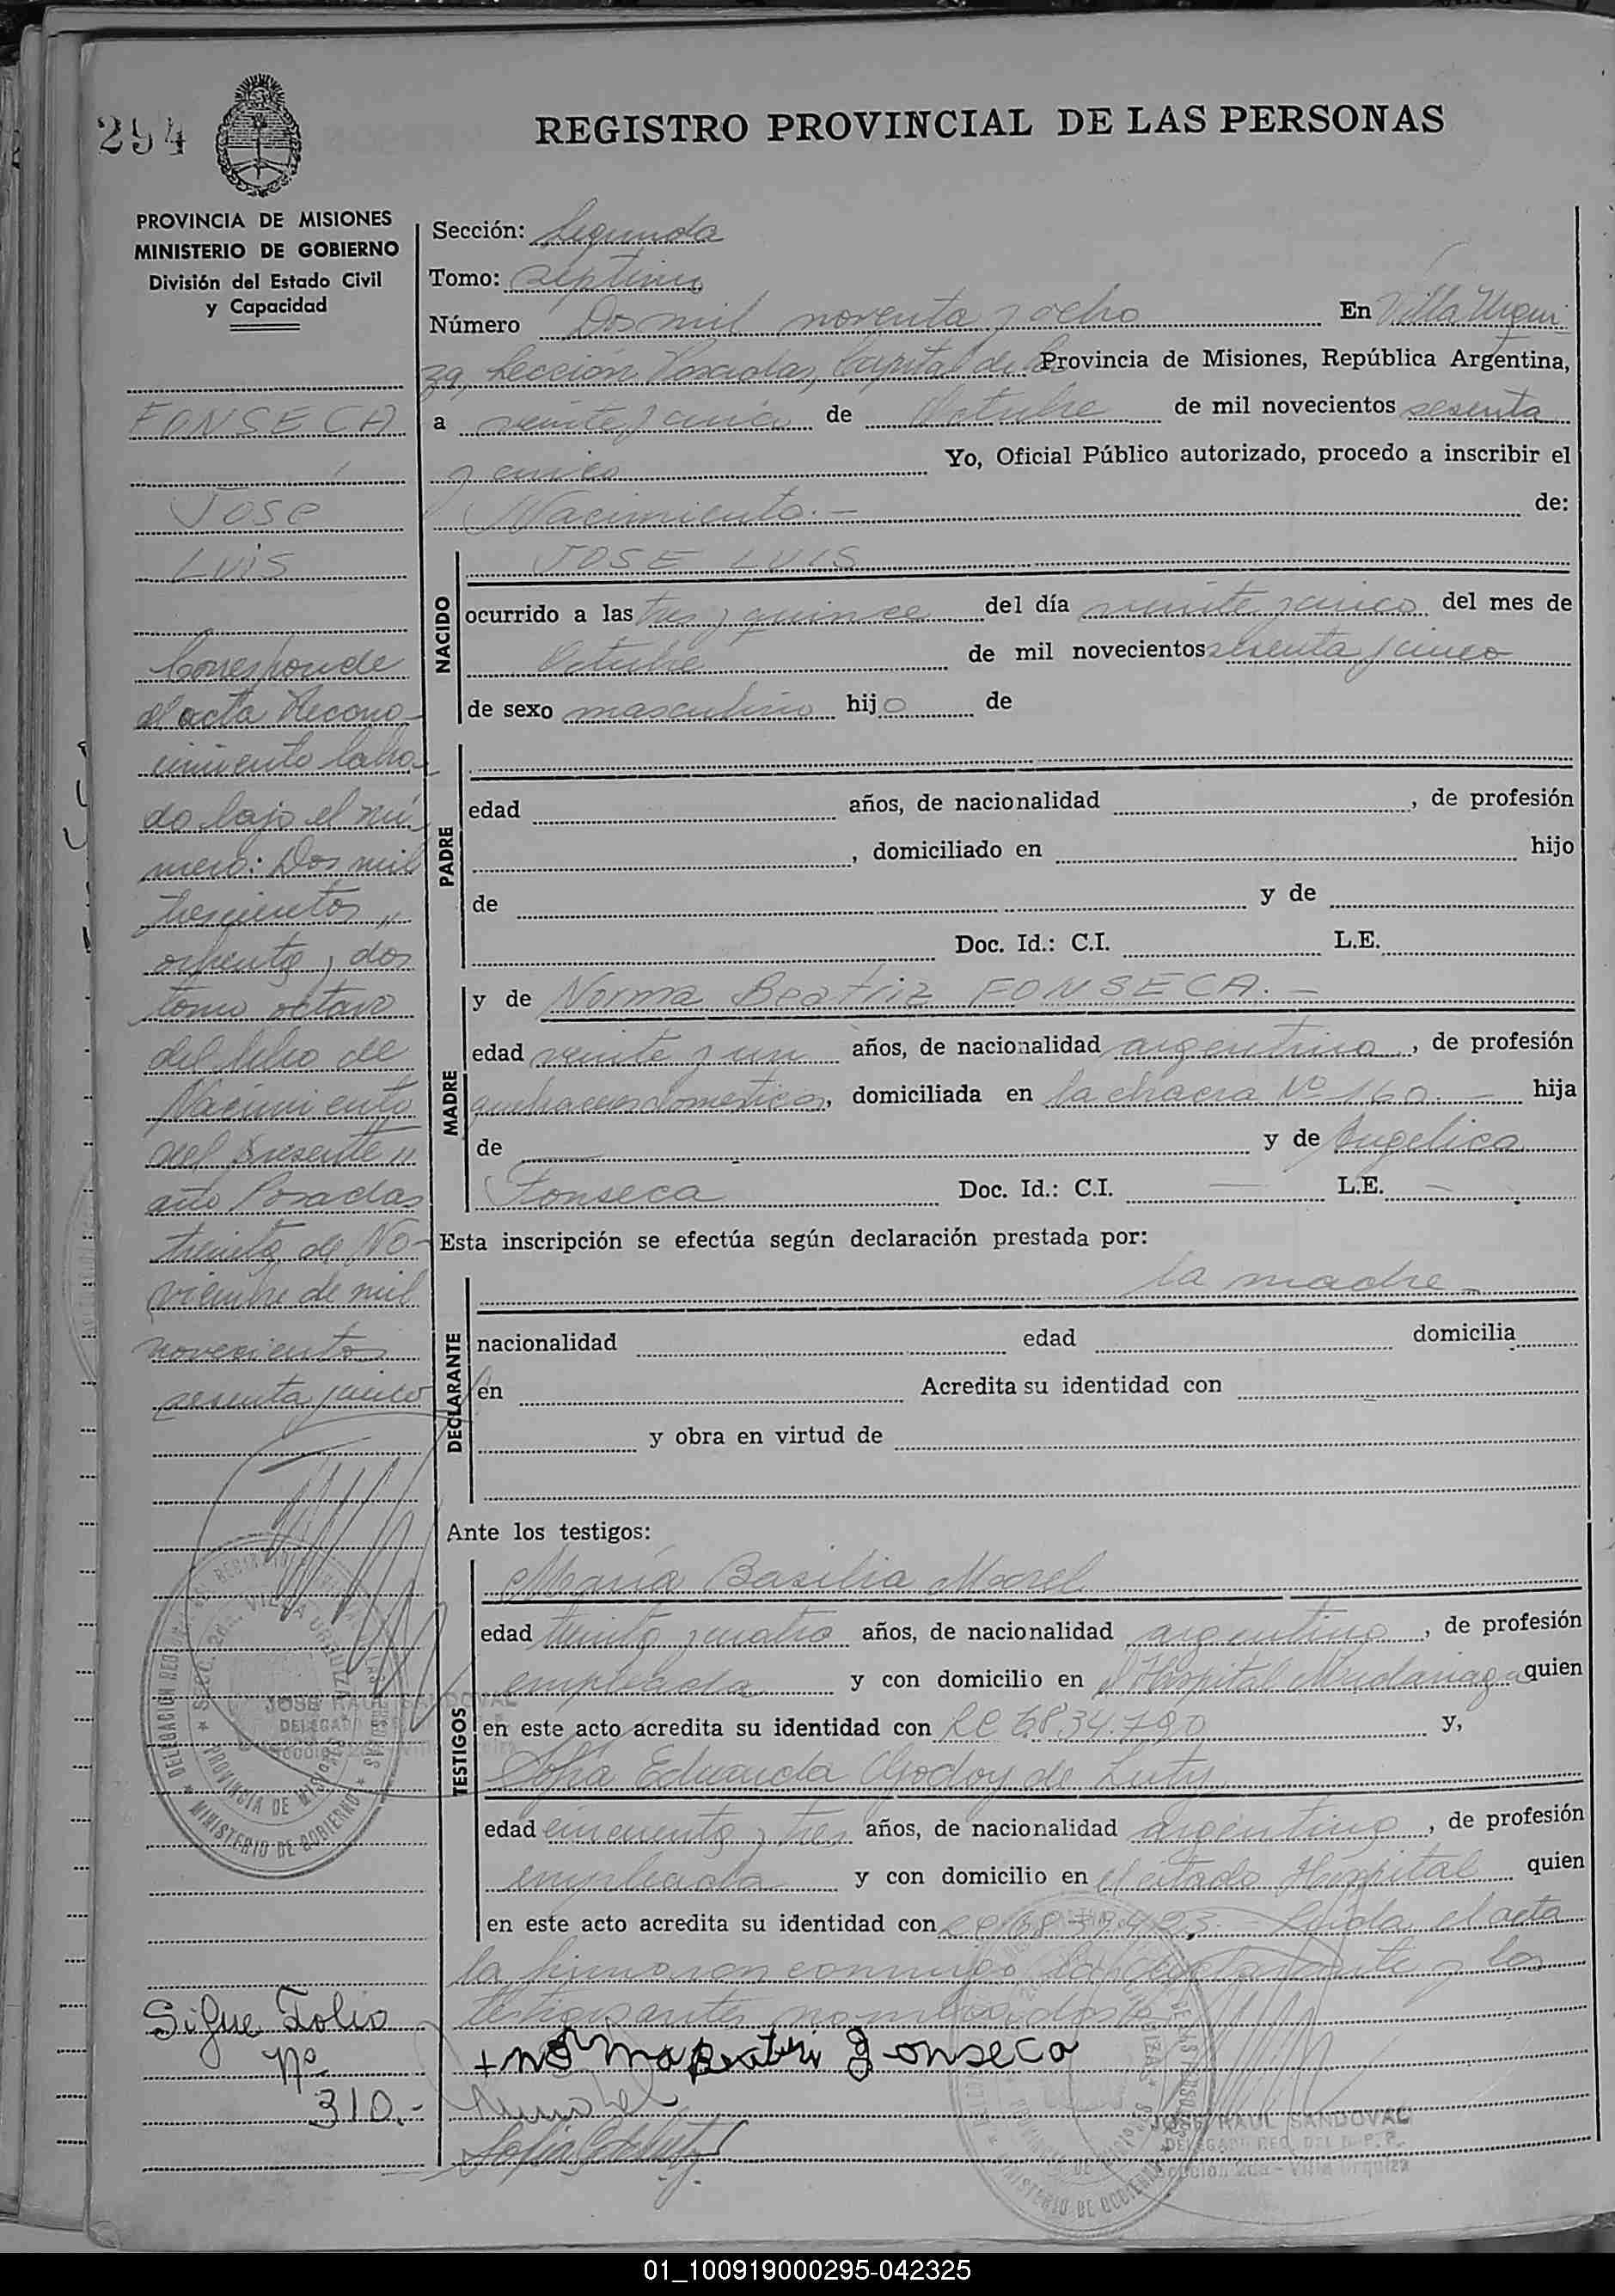 294
REGISTRO PROVINCIAL DE LAS PERSONAS
PROVINCIA DE MISIONES
MINISTERIO DE GOBIERNO
División del Estado Civil
y Capacidad
FONSECA
José
Luis
Corresponde
al acta Recono-
cimiento labra-
do bajo el nú-
mero: Dos mil
trescientos
ochenta y dos
tomo octavo
del libro de
Nacimiento
del presente
año Posadas
treinta de No-
viembre de mil
novecientos
sesenta y cinco
Sigue Folio
Nº
310.-
Sección: Segunda
Tomo: septimo
Número Dos mil noventa y ocho En Villa Urqui
za, Sección Posadas, Capital de la Provincia de Misiones, República Argentina,
a veinte y cinco de Octubre de mil novecientos sesenta
y cinco Yo, Oficial Público autorizado, procedo a inscribir el
Nacimiento.- de:
NACIDO
JOSE LUIS
ocurrido a las tres y quince del día veinte y cinco del mes de
Octubre de mil novecientos sesenta y cinco
de sexo masculino hijo de
PADRE
edad años, de nacionalidad , de profesión
, domiciliado en hijo
de y de
Doc. Id.: C.I. L.E.
MADRE
y de Norma Beatriz FONSECA.-
edad veinte y un años, de nacionalidad argentina, de profesión
quehaceres domesticos, domiciliada en la chacra Nº 160.- hija
de — y de Angelica
Fonseca Doc. Id.: C.I. — L.E. —
Esta inscripción se efectúa según declaración prestada por:
la madre-
DECLARANTE
nacionalidad edad domicilia
en Acredita su identidad con
y obra en virtud de
Ante los testigos:
TESTIGOS
María Basilia Morel
edad treinta y cuatro años, de nacionalidad argentina, de profesión
empleada y con domicilio en el Hospital Madariaga quien
en este acto acredita su identidad con y,
Sofia Eduarda Godoy de Luty
edad cincuenta y tres años, de nacionalidad argentina, de profesión
empleada y con domicilio en el citado Hospital quien
en este acto acredita su identidad con Leida el acta
la firmaron conmigo la declarante y los
testigos antes nombrados
+ Norma Beatri Fonseca
JOSE RAUL SANDOVAL
DELEGADO REG. DEL
Sección 2da - Villa Urquiza
MINISTERIO DE GOBIERNO
PROVINCIA DE MISIONES
01_100919000295-042325